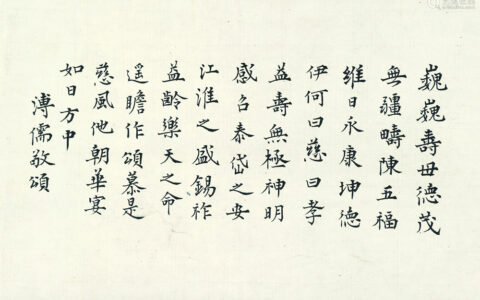 巍巍壽毌德茂
無疆疇陳五福
維日永康坤德
伊何曰慈曰孝
益壽無極神明
感召泰岱之安
江淮之盛錫祚
益齡樂天之命
遥瞻作頌慕是
慈風他朝華宴
如日方中
溥儒敬頌